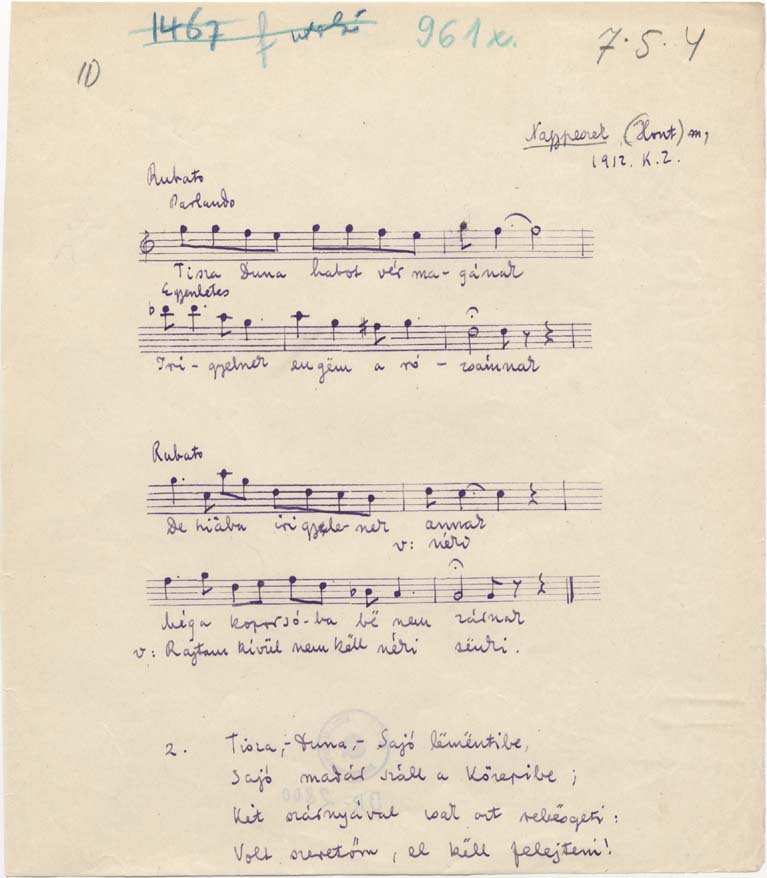 1467 f utolsó
961x.
7.5.4
1D
(Hont) m,
1912. K.Z.
Rubato
Parlando
Tisza Duna habot vér ma-gának
Egyenletes
Iri-gyelnek engëm a ró-zsáimnak
Rubato
De hiába irigyelenek annak
v: néki
Méga koporsó-ba bé nem zárnak
v: Rajtam kívül nem këll néki sënki.
2. Tisza,-Duna,- Sajó lëmëntibe,
Sajó madár száll a Közepibe;
Két szárnyával csak azt rebësgeti:
Volt szeretőm, el këll felejteni!